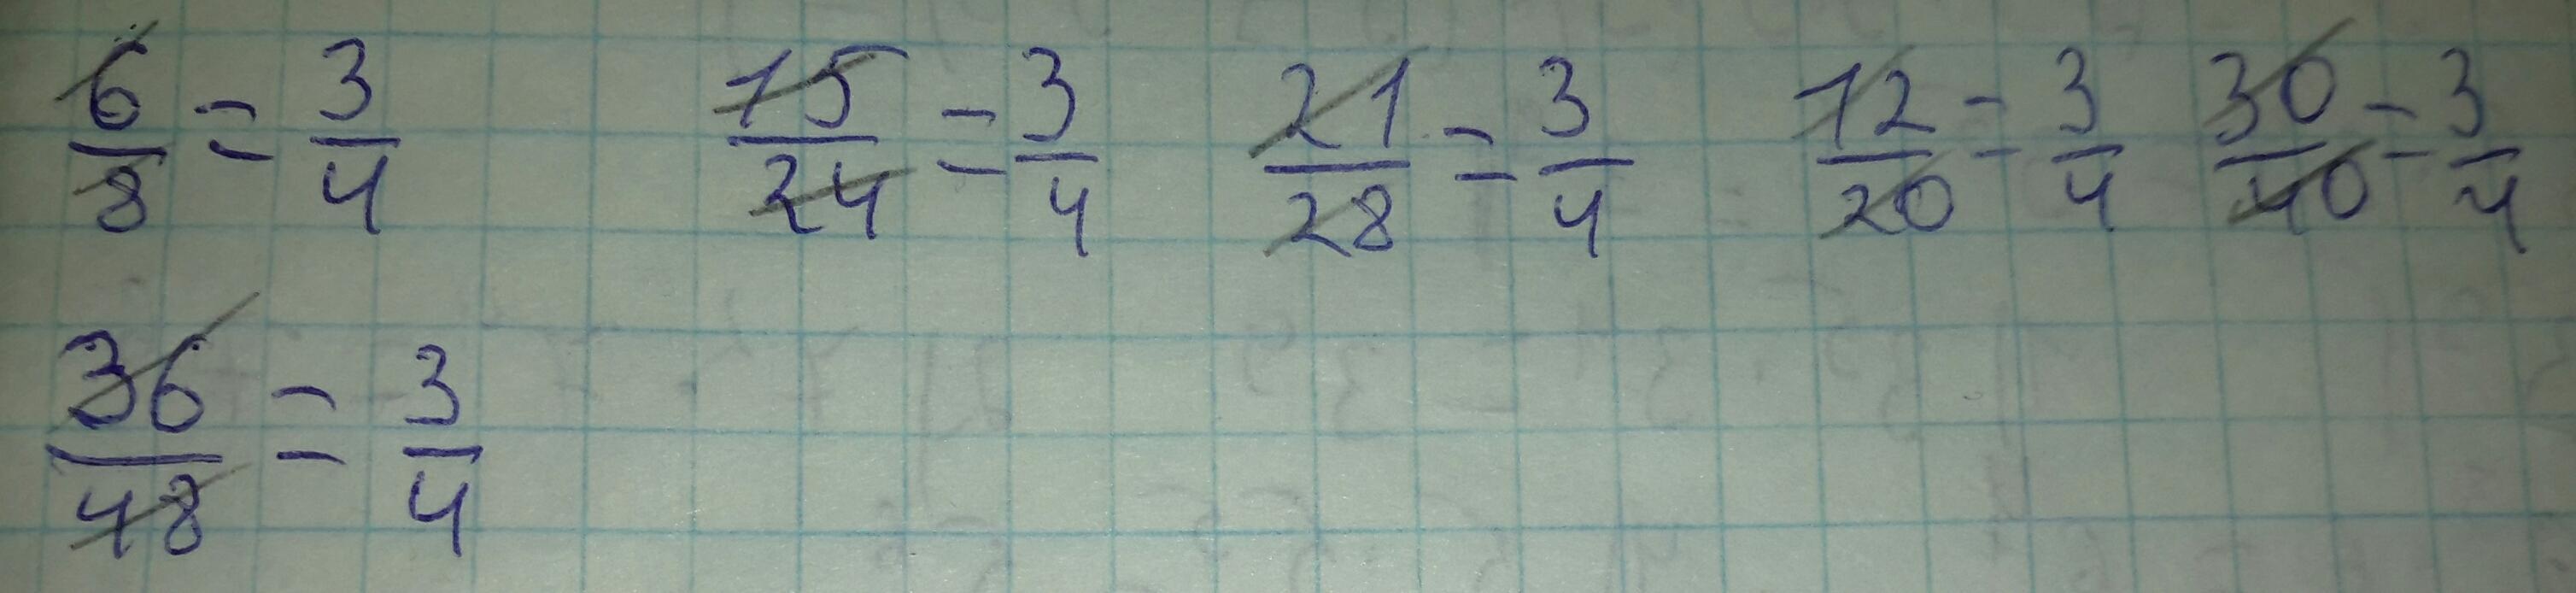 6/8 = 3/4 15/24 = 3/4 21/28 = 3/4 12/20 = 3/4 30/40 = 3/4
36/48 = 3/4